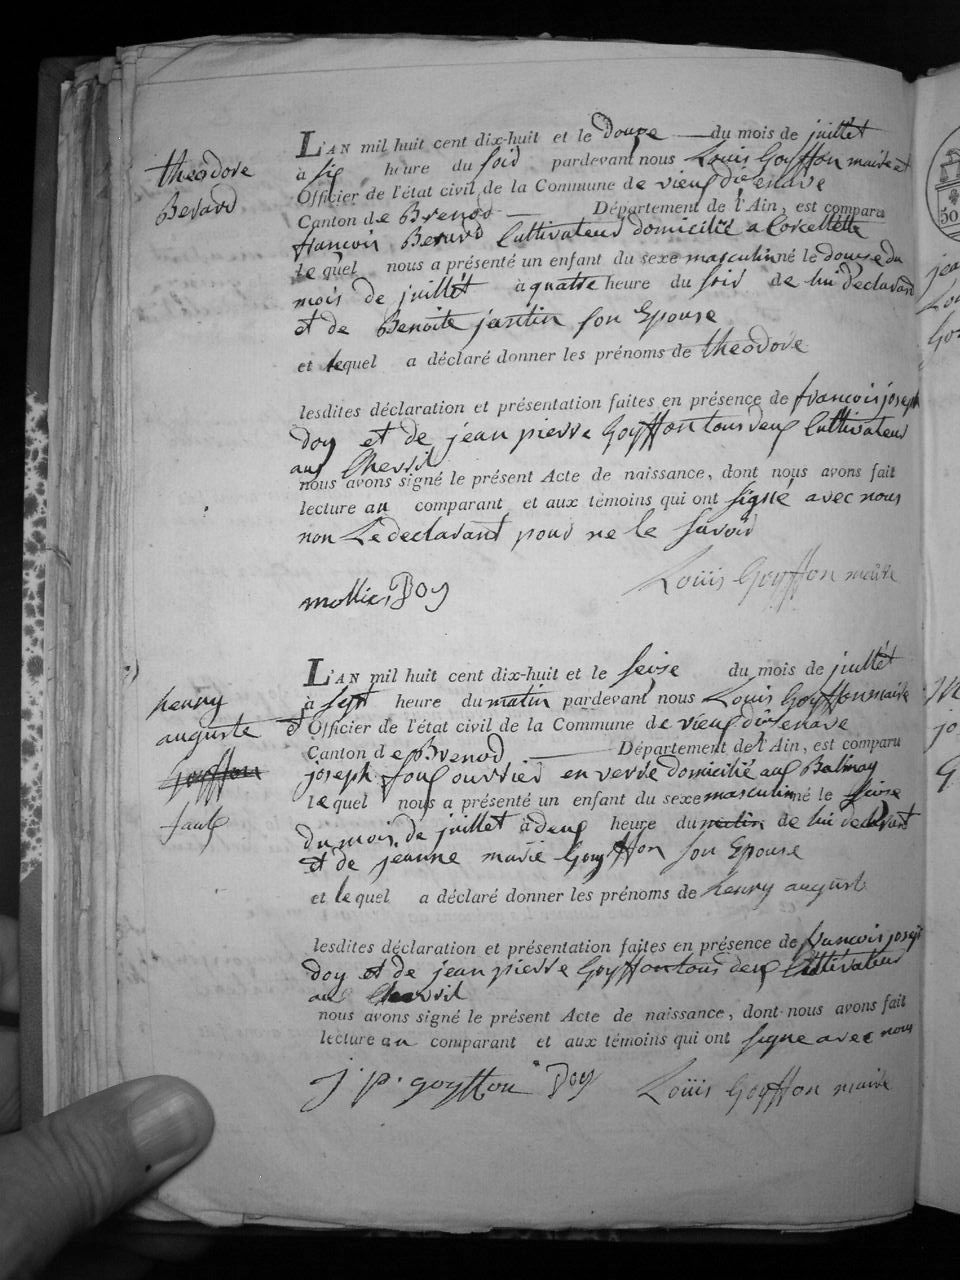 theodore
Berard
L'AN mil huit cent dix-huit et le Douze du mois de juillet
à six heure du soir pardevant nous Louis Goyffon maire et
Officier de l'état civil de la Commune de vieux d'izenave
Canton de Brenod Département de l'Ain, est comparu
francois Berard Cultivateur domicilié a Corcellette
lequel nous a présenté un enfant du sexe masculin né le douze du
mois de juillét à quatre heure du soir de lui declarant
et de Benoite jantin son Epouse
et lequel a déclaré donner les prénoms de theodore
lesdites déclaration et présentation faites en présence de francois joseph
Doy et de jean pierre Goyffon tous deux Cultivateur
aux
nous avons signé le présent Acte de naissance, dont nous avons fait
lecture au comparant et aux témoins qui ont signé avec nous
non Le declarant pour ne le savoir
Doy Louis Goyffon maire
henry
auguste
Goyffon
faux
L'AN mil huit cent dix-huit et le seize du mois de juillet
à sept heure du matin pardevant nous Louis Goyffon maire
et Officier de l'état civil de la Commune de vieux d'izenave
Canton de Brenod Département de l'Ain, est comparu
joseph foux ouvrier en verre domicilié aux Balmay
lequel nous a présenté un enfant du sexe masculin né le seize
du mois de juillet à deux heure du matin de lui declarant
et de jeanne marie Goyffon son Epouse
et lequel a déclaré donner les prénoms de henry auguste
lesdites déclaration et présentation faites en présence de francois joseph
Doy et de jean pierre Goyffon tous deux Cultivateur
aux
nous avons signé le présent Acte de naissance, dont nous avons fait
lecture au comparant et aux témoins qui ont signe avec nous
j. p. goyffon Doy Louis Goyffon maire